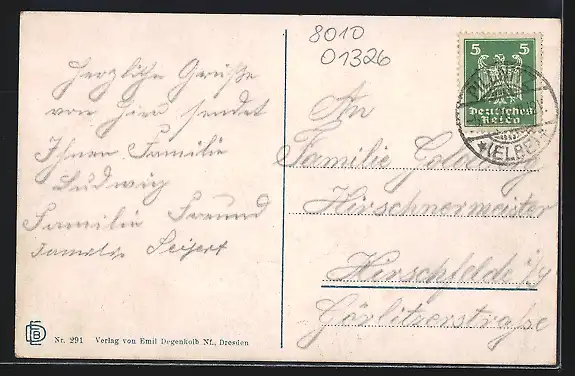 8010
01326
5 5
Deutsches
Reich
(ELBE)
Herzliche Grüße
von hier sendet
Ihnen Familie
Ludwig
Familie Freund
Familie Seifert
An
Familie
Hirschfelde i/
Görlitzerstraße
Nr. 291 Verlag von Emil Degenkolb Nf., Dresden